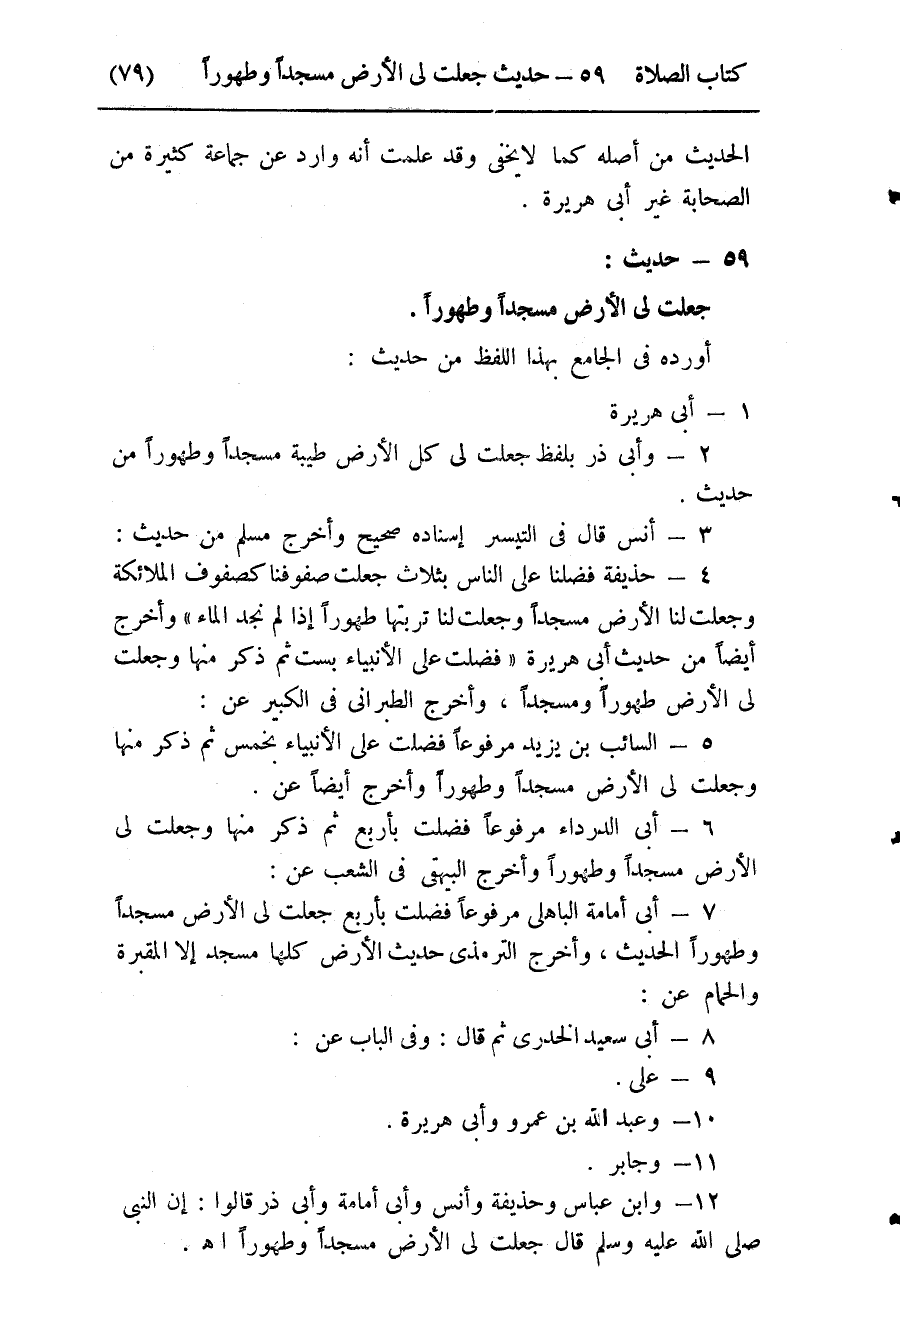 كتاب الصلاة ٥٩ – حديث جعلت لى الأرض مسجداً وطهوراً (٧٩)
الحديث من أصله كما لايخفى وقد علمت أنه وارد عن جماعة كثيرة من
الصحابة غير أبى هريرة .
٥٩ – حديث :
جعلت لى الأرض مسجداً وطهوراً .
أورده فى الجامع بهذا اللفظ من حديث :
١ – أبى هريرة
٢ – وأبى ذر بلفظ جعلت لى كل الأرض طيبة مسجداً وطهوراً من
حديث .
٣ – أنس قال فى التيسير إسناده صحيح وأخرج مسلم من حديث :
٤ – حذيفة فضلنا على الناس بثلاث جعلت صفوفنا كصفوف الملائكة
وجعلت لنا الأرض مسجداً وجعلت لنا تربتها طهوراً إذا لم نجد الماء » وأخرج
أيضاً من حديث أبى هريرة « فضلت على الأنبياء بست ثم ذكر منها وجعلت
لى الأرض طهوراً ومسجداً ، وأخرج الطبرانى فى الكبير عن :
٥ – السائب بن يزيد مرفوعاً فضلت على الأنبياء بخمس ثم ذكر منها
وجعلت لى الأرض مسجداً وطهوراً وأخرج أيضاً عن .
٦ – أبى الدرداء مرفوعاً فضلت بأربع ثم ذكر منها وجعلت لى
الأرض مسجداً وطهوراً وأخرج البيهقى فى الشعب عن :
٧ – أبى أمامة الباهلى مرفوعاً فضلت بأربع جعلت لى الأرض مسجداً
وطهوراً الحديث ، وأخرج الترمذى حديث الأرض كلها مسجد إلا المقبرة
والحمام عن :
٨ – أبى سعيد الخدرى ثم قال : وفى الباب عن :
٩ – على .
١٠– وعبد الله بن عمرو وأبى هريرة .
١١– وجابر .
١٢– وابن عباس وحذيفة وأنس وأبى أمامة وأبى ذر قالوا : إن النبى
صلى الله عليه وسلم قال جعلت لى الأرض مسجداً وطهوراً اه .